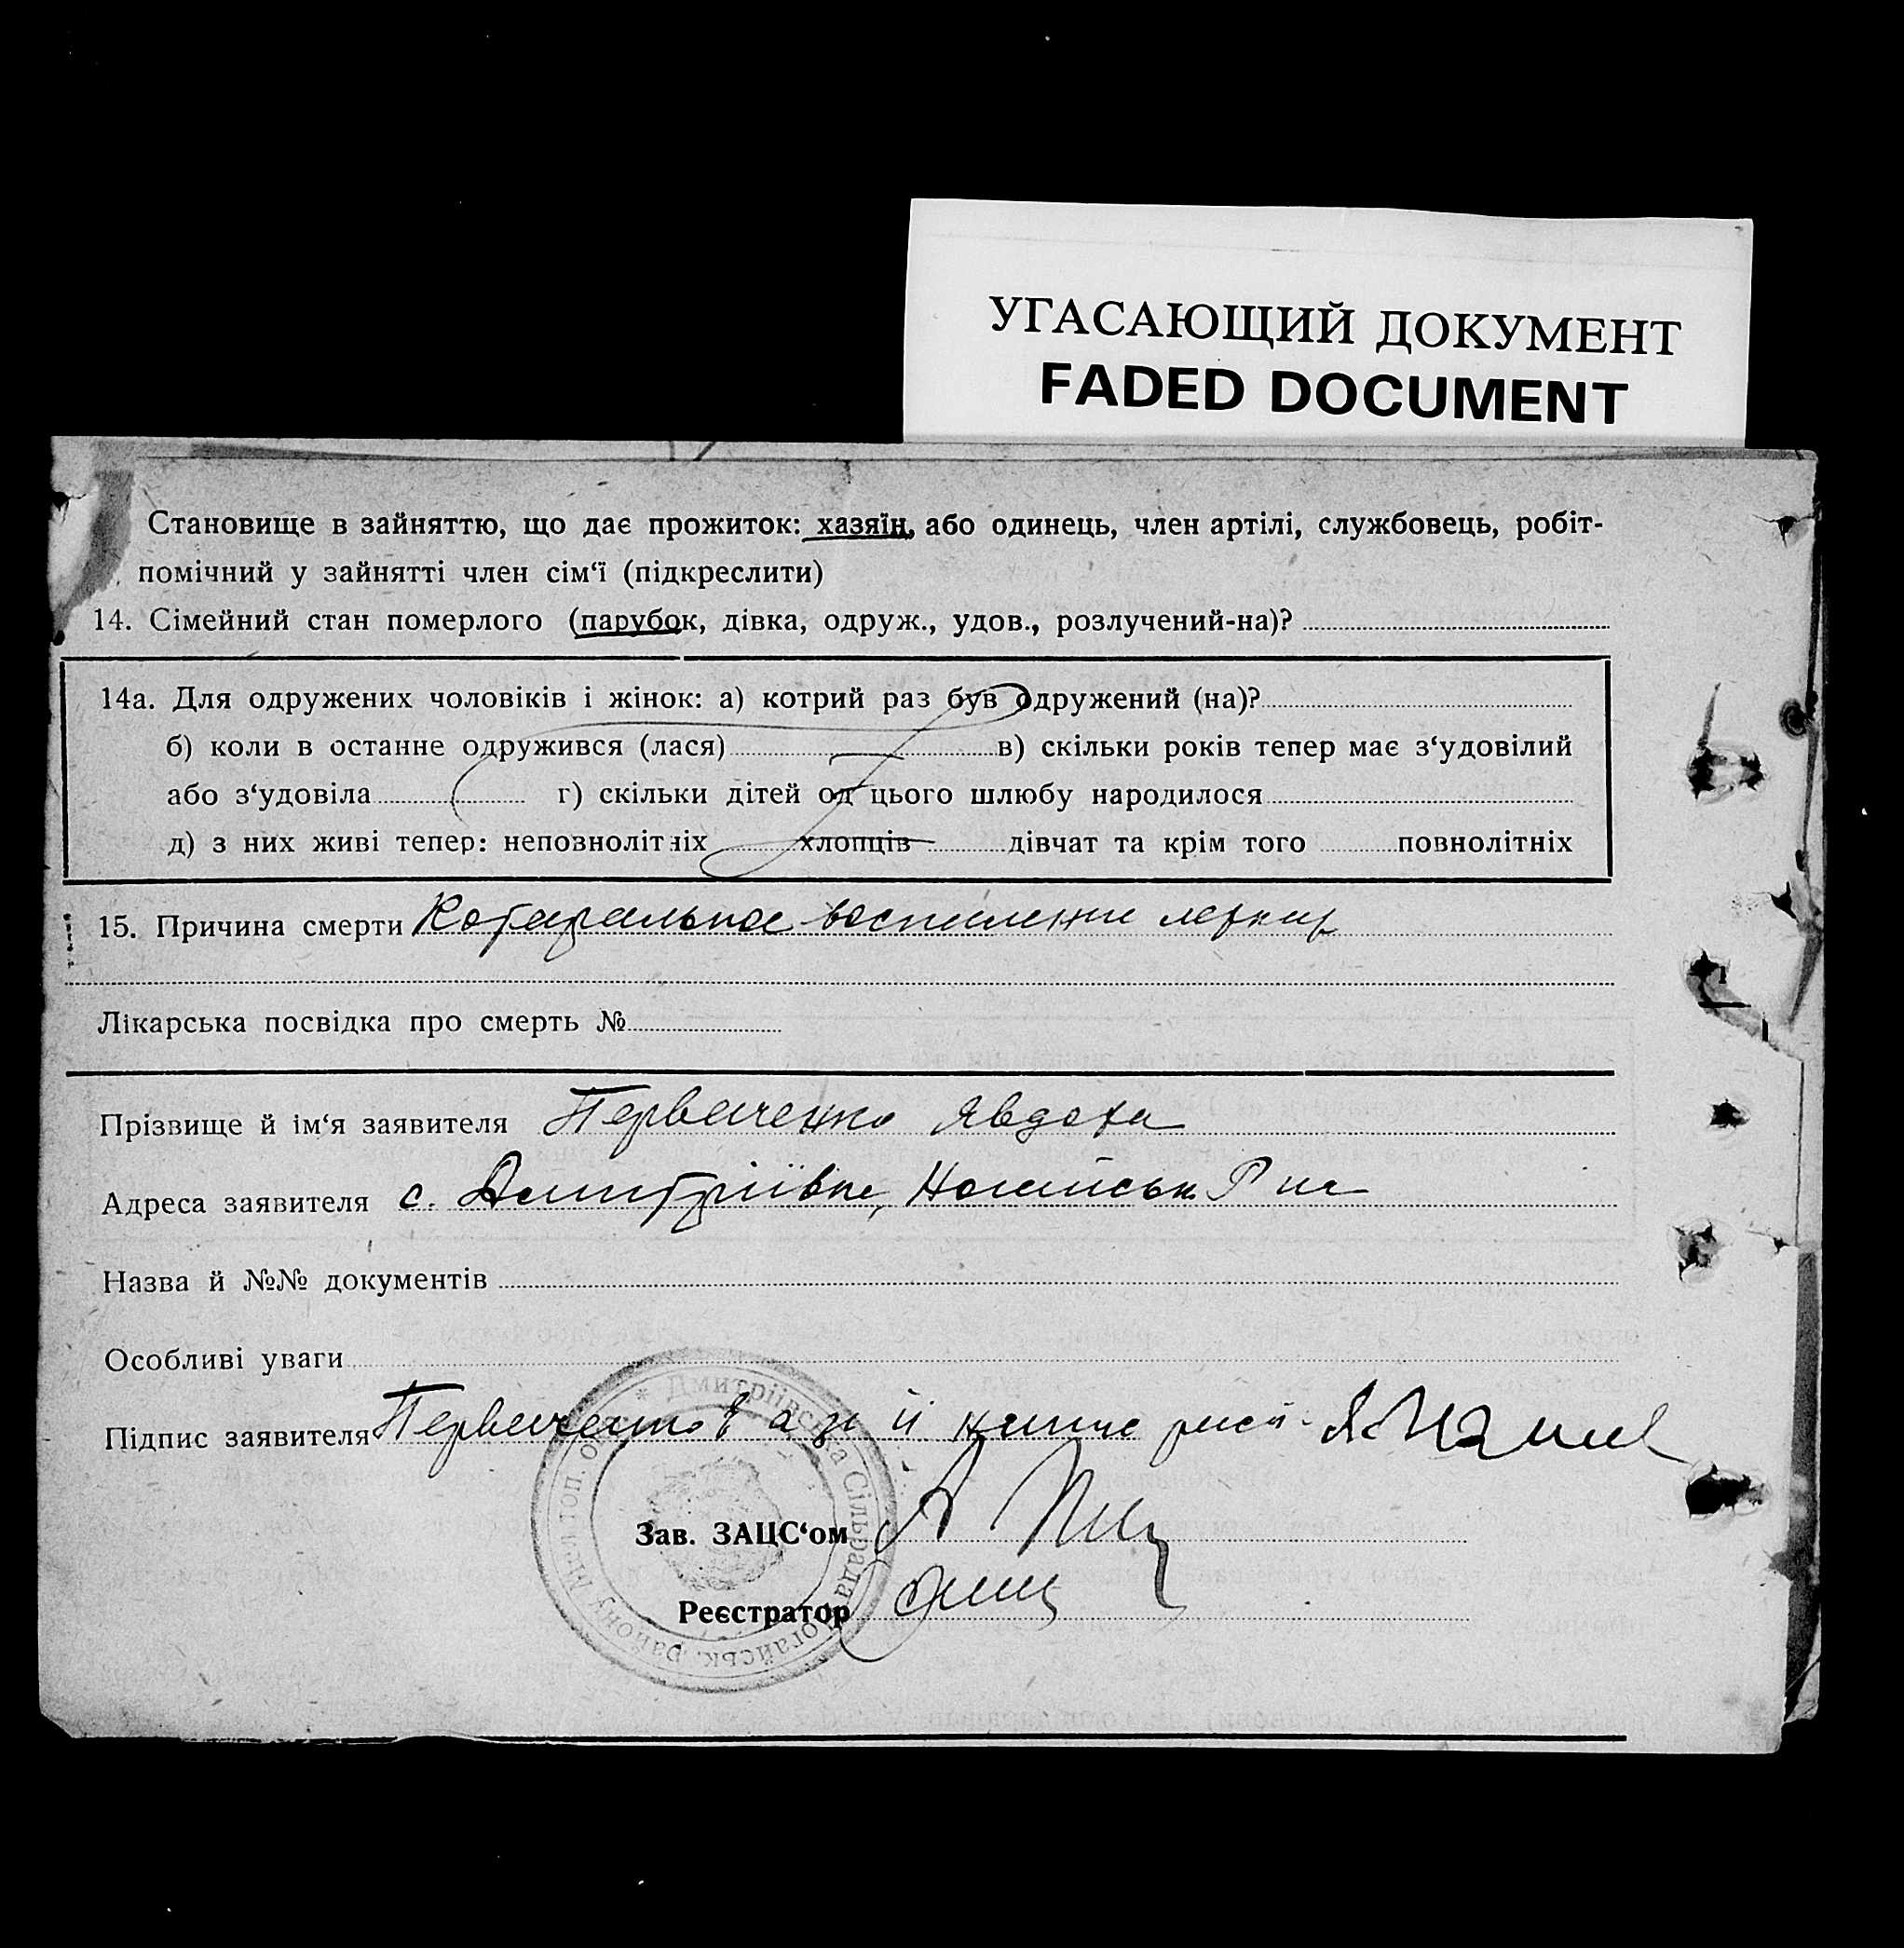 УГАСАЮЩИЙ ДОКУМЕНТ
FADED DOCUMENT
Становище в зайняттю, що дає прожиток: хазяїн, або одинець, член артілі, службовець, робіт-
помічний у зайнятті член сім‘ї (підкреслити)
14. Сімейний стан померлого (парубок, дівка, одруж., удов., розлучений-на)?
14а. Для одружених чоловіків і жінок: а) котрий раз був одружений (на)?
б) коли в останне одружився (лася) в) скільки років тепер має з‘удовілий
або з‘удовіла г) скільки дітей од цього шлюбу народилося
д) з них живі тепер: неповнолітніх хлопців дівчат та крім того повнолітніх
15. Причина смерти Катаральное воспаление легких
Лікарська посвідка про смерть №
Прізвище й ім‘я заявителя Явдоха
Адреса заявителя с. Дмитріївка, Ногайськ. Р на
Назва й №№ документів
Особливі уваги
Підпис заявителя
* Дмитріївська Сільрада Ногайськ. району М-топ. окр.
Зав. ЗАЦС‘ом
Реєстратор